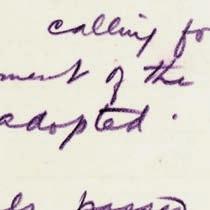 calling fo
ment of the
adopted.